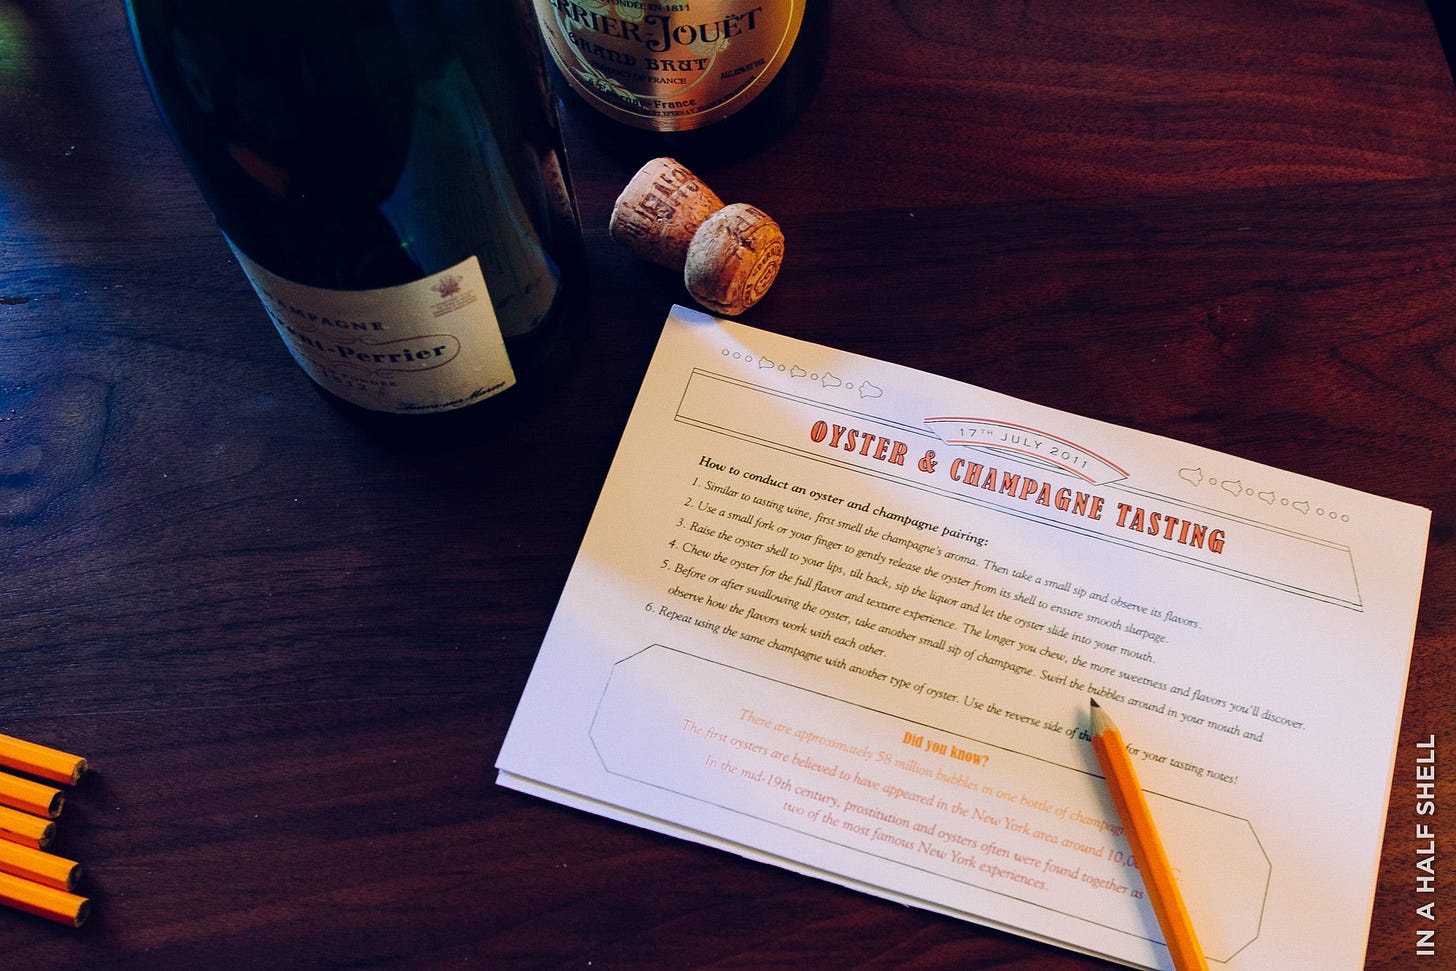 FONDÉE EN 1811
ERRIER-JOUËT
GRAND BRUT
PRODUCT OF FRANCE
ALC. 12% BY VOL.
Epernay-France
HAMPAGNE
nt-Perrier
1812
Tours-sur-Marne
17TH JULY 2011
OYSTER & CHAMPAGNE TASTING
How to conduct an oyster and champagne pairing:
1. Similar to tasting wine, first smell the champagne's aroma. Then take a small sip and observe its flavors.
2. Use a small fork or your finger to gently release the oyster from its shell to ensure smooth slurpage.
3. Raise the oyster shell to your lips, tilt back, sip the liquor and let the oyster slide into your mouth.
4. Chew the oyster for the full flavor and texture experience. The longer you chew, the more sweetness and flavors you'll discover.
5. Before or after swallowing the oyster, take another small sip of champagne. Swirl the bubbles around in your mouth and
observe how the flavors work with each other.
6. Repeat using the same champagne with another type of oyster. Use the reverse side of th for your tasting notes!
Did you know?
There are approximately 58 million bubbles in one bottle of champag
The first oysters are believed to have appeared in the New York area around 10,0
In the mid-19th century, prostitution and oysters often were found together as
two of the most famous New York experiences.
IN A HALF SHELL